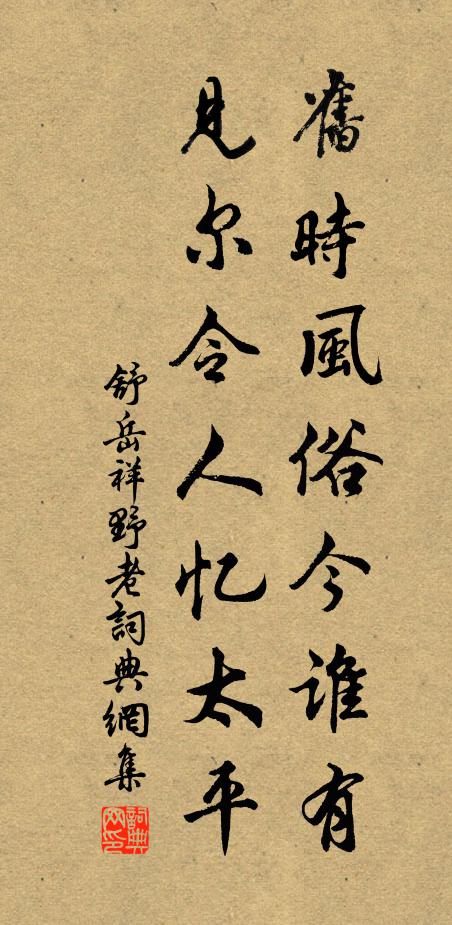 舊時風俗今誰有
見尔令人忆太平
舒岳祥野老詞典網集
詞典网印